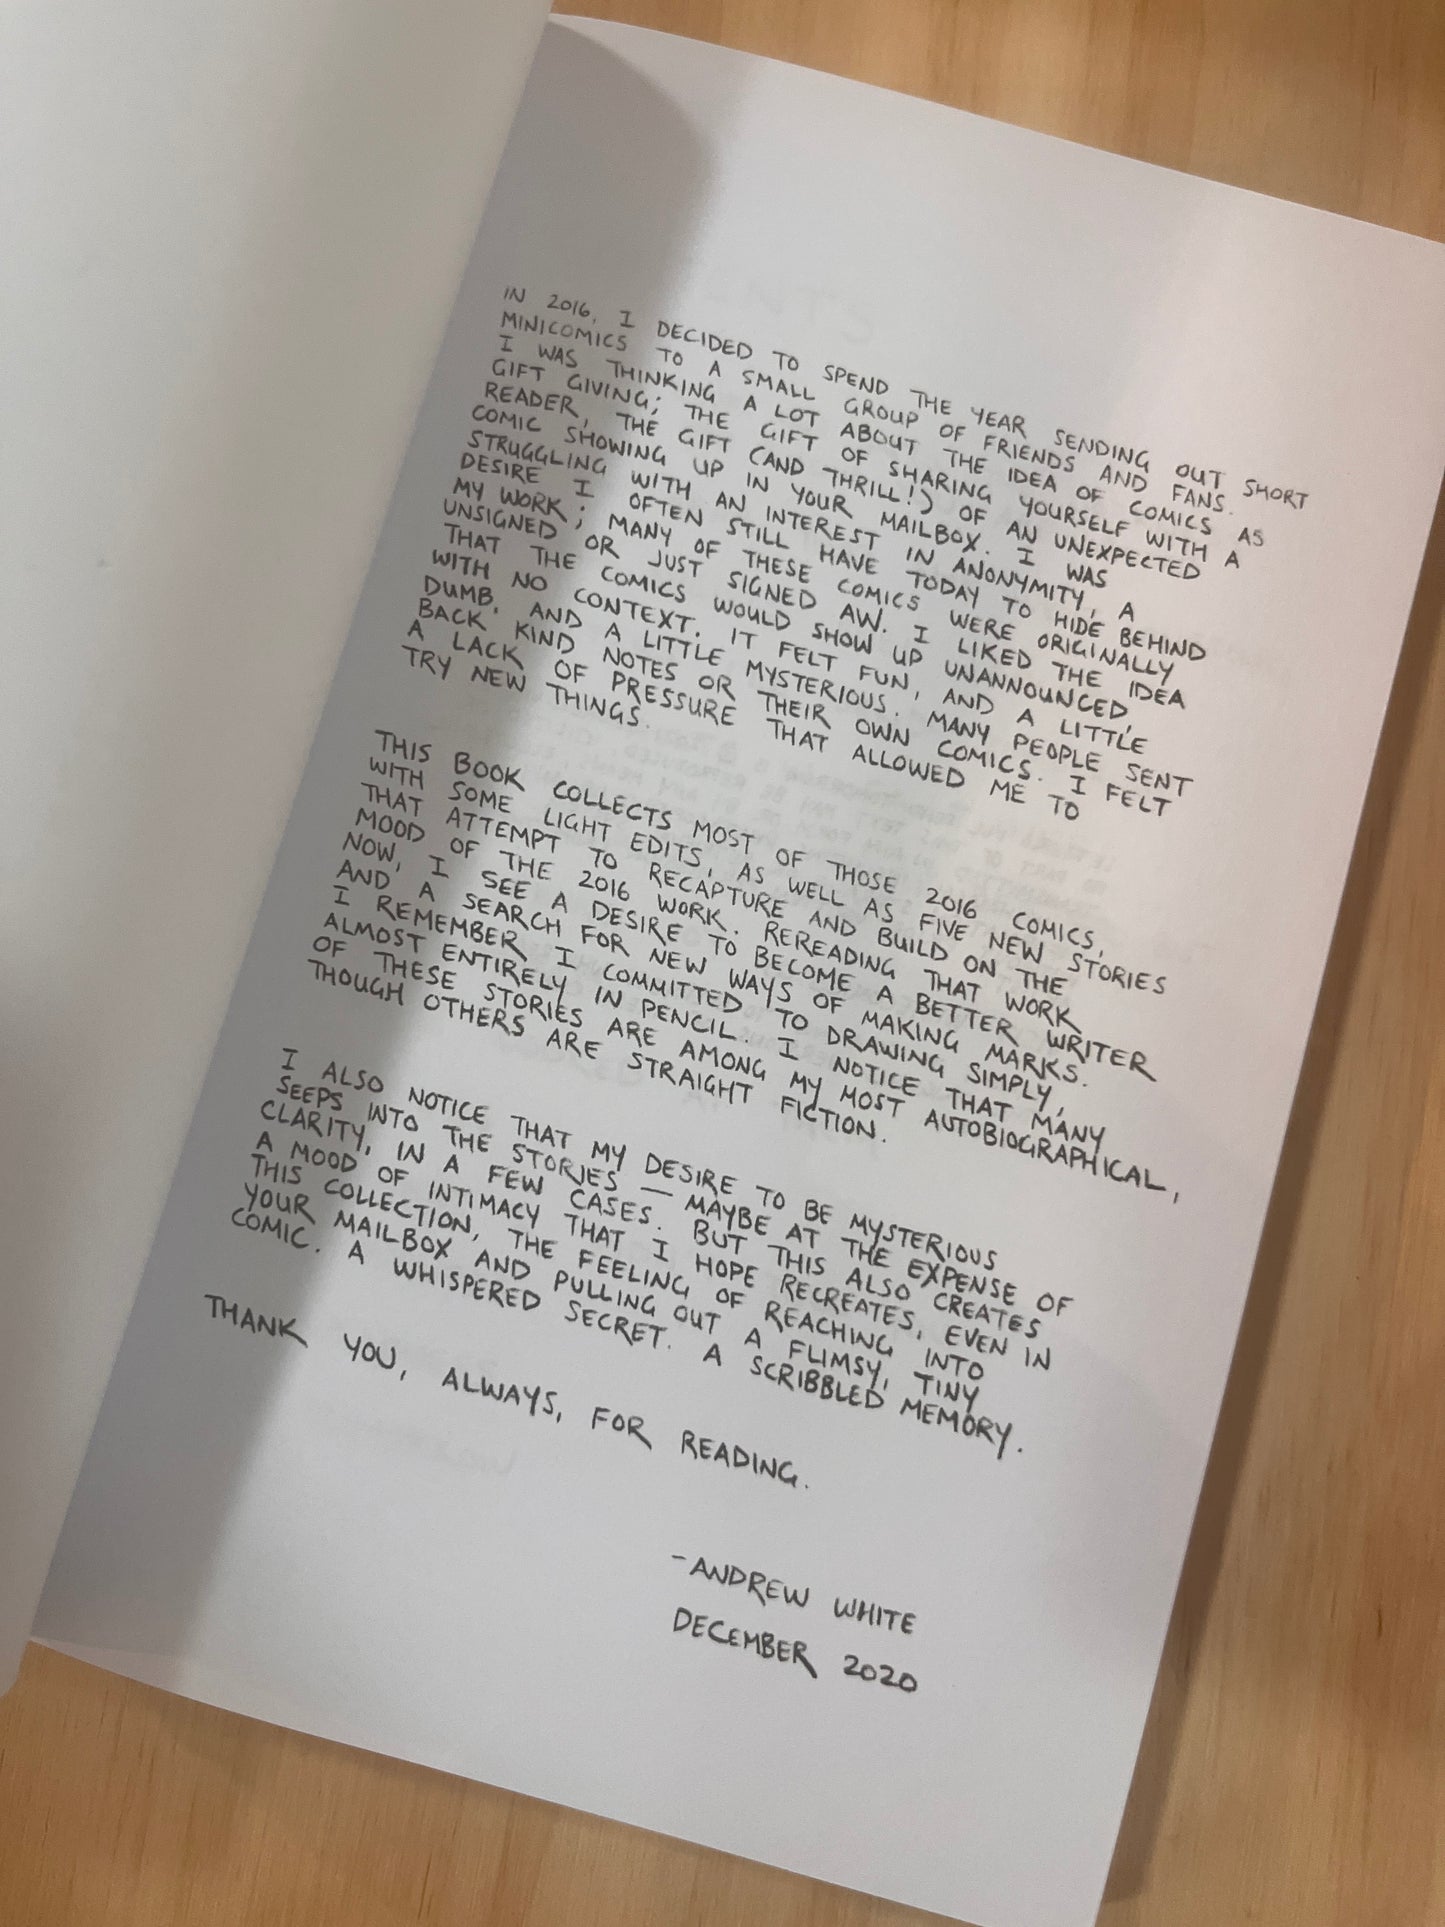 IN 2016, I DECIDED TO SPEND THE YEAR SENDING OUT SHORT
MINICOMICS TO A SMALL GROUP OF FRIENDS AND FANS.
I WAS THINKING A LOT ABOUT THE IDEA OF COMICS AS
GIFT GIVING; THE GIFT OF SHARING YOURSELF WITH A
READER, THE GIFT (AND THRILL!) OF AN UNEXPECTED
COMIC SHOWING UP IN YOUR MAILBOX. I WAS
STRUGGLING WITH AN INTEREST IN ANONYMITY, A
DESIRE I OFTEN STILL HAVE TODAY TO HIDE BEHIND
MY WORK; MANY OF THESE COMICS WERE ORIGINALLY
UNSIGNED OR JUST SIGNED AW. I LIKED THE IDEA
THAT THE COMICS WOULD SHOW UP UNANNOUNCED,
WITH NO CONTEXT. IT FELT FUN, AND A LITTLE
DUMB, AND A LITTLE MYSTERIOUS. MANY PEOPLE SENT
BACK KIND NOTES OR THEIR OWN COMICS. I FELT
A LACK OF PRESSURE THAT ALLOWED ME TO
TRY NEW THINGS.
THIS BOOK COLLECTS MOST OF THOSE 2016 COMICS,
WITH SOME LIGHT EDITS, AS WELL AS FIVE NEW STORIES
THAT ATTEMPT TO RECAPTURE AND BUILD ON THE
MOOD OF THE 2016 WORK. REREADING THAT WORK
NOW, I SEE A DESIRE TO BECOME A BETTER WRITER
AND A SEARCH FOR NEW WAYS OF MAKING MARKS.
I REMEMBER I COMMITTED TO DRAWING SIMPLY,
ALMOST ENTIRELY IN PENCIL. I NOTICE THAT MANY
OF THESE STORIES ARE AMONG MY MOST AUTOBIOGRAPHICAL,
THOUGH OTHERS ARE STRAIGHT FICTION.
I ALSO NOTICE THAT MY DESIRE TO BE MYSTERIOUS
SEEPS INTO THE STORIES — MAYBE AT THE EXPENSE OF
CLARITY, IN A FEW CASES. BUT THIS ALSO CREATES
A MOOD OF INTIMACY THAT I HOPE RECREATES, EVEN IN
THIS COLLECTION, THE FEELING OF REACHING INTO
YOUR MAILBOX AND PULLING OUT A FLIMSY, TINY
COMIC. A WHISPERED SECRET. A SCRIBBLED MEMORY.
THANK YOU, ALWAYS, FOR READING.
-ANDREW WHITE
DECEMBER 2020